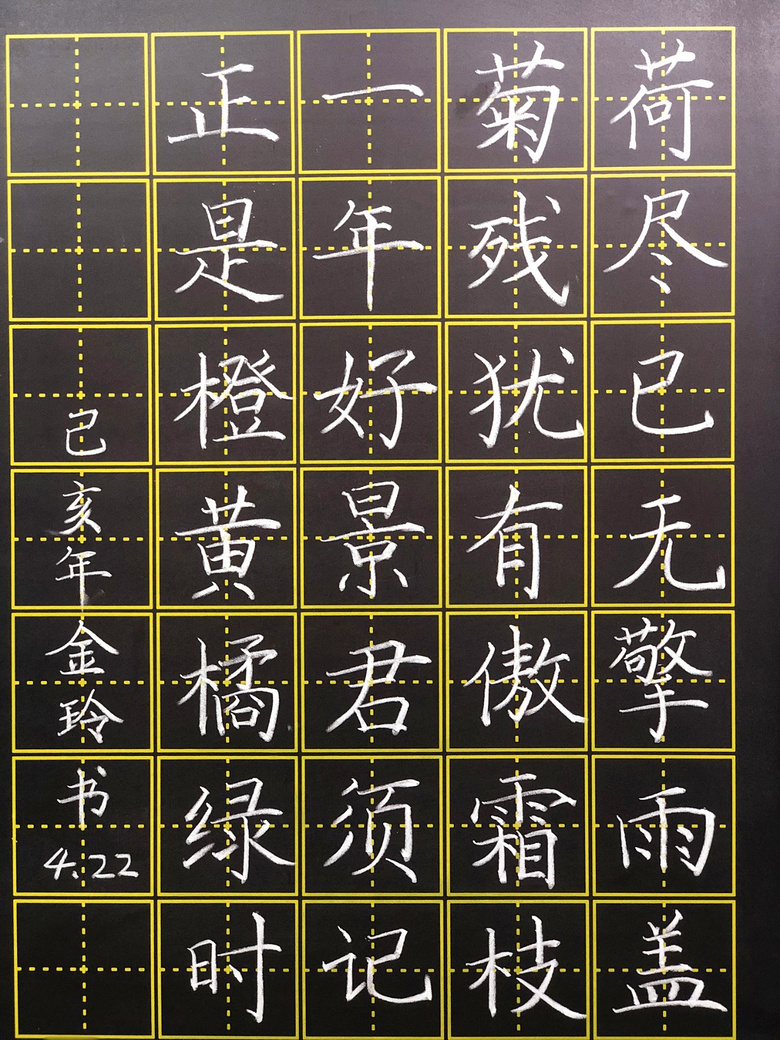 荷尽已无擎雨盖
菊残犹有傲霜枝
一年好景君须记
正是橙黄橘绿时
己亥年金玲书4.22